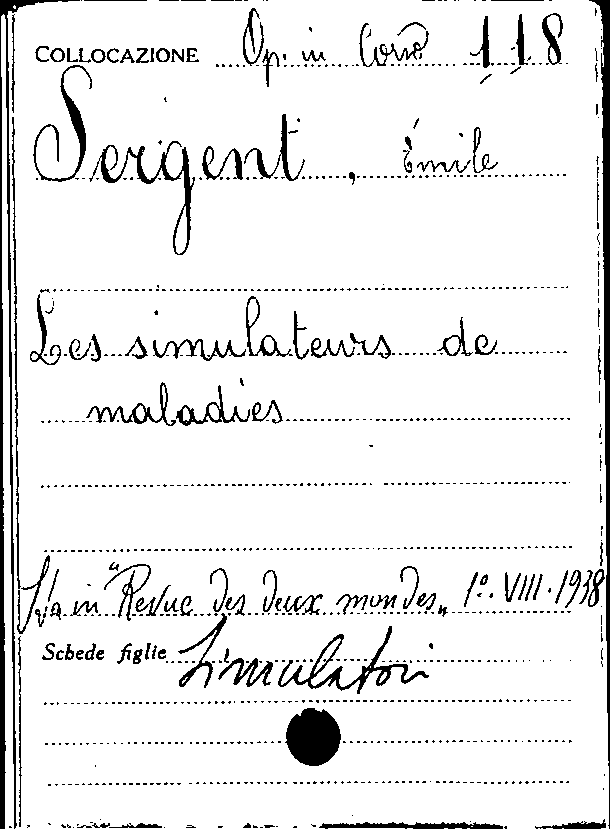 COLLOCAZIONE Op. in Corso 118
Sergent, Émile
Les simulateurs de
maladies
Sta in "Revue des deux mondes„ 1º. VIII. 1938
Schede figlie Simulatori